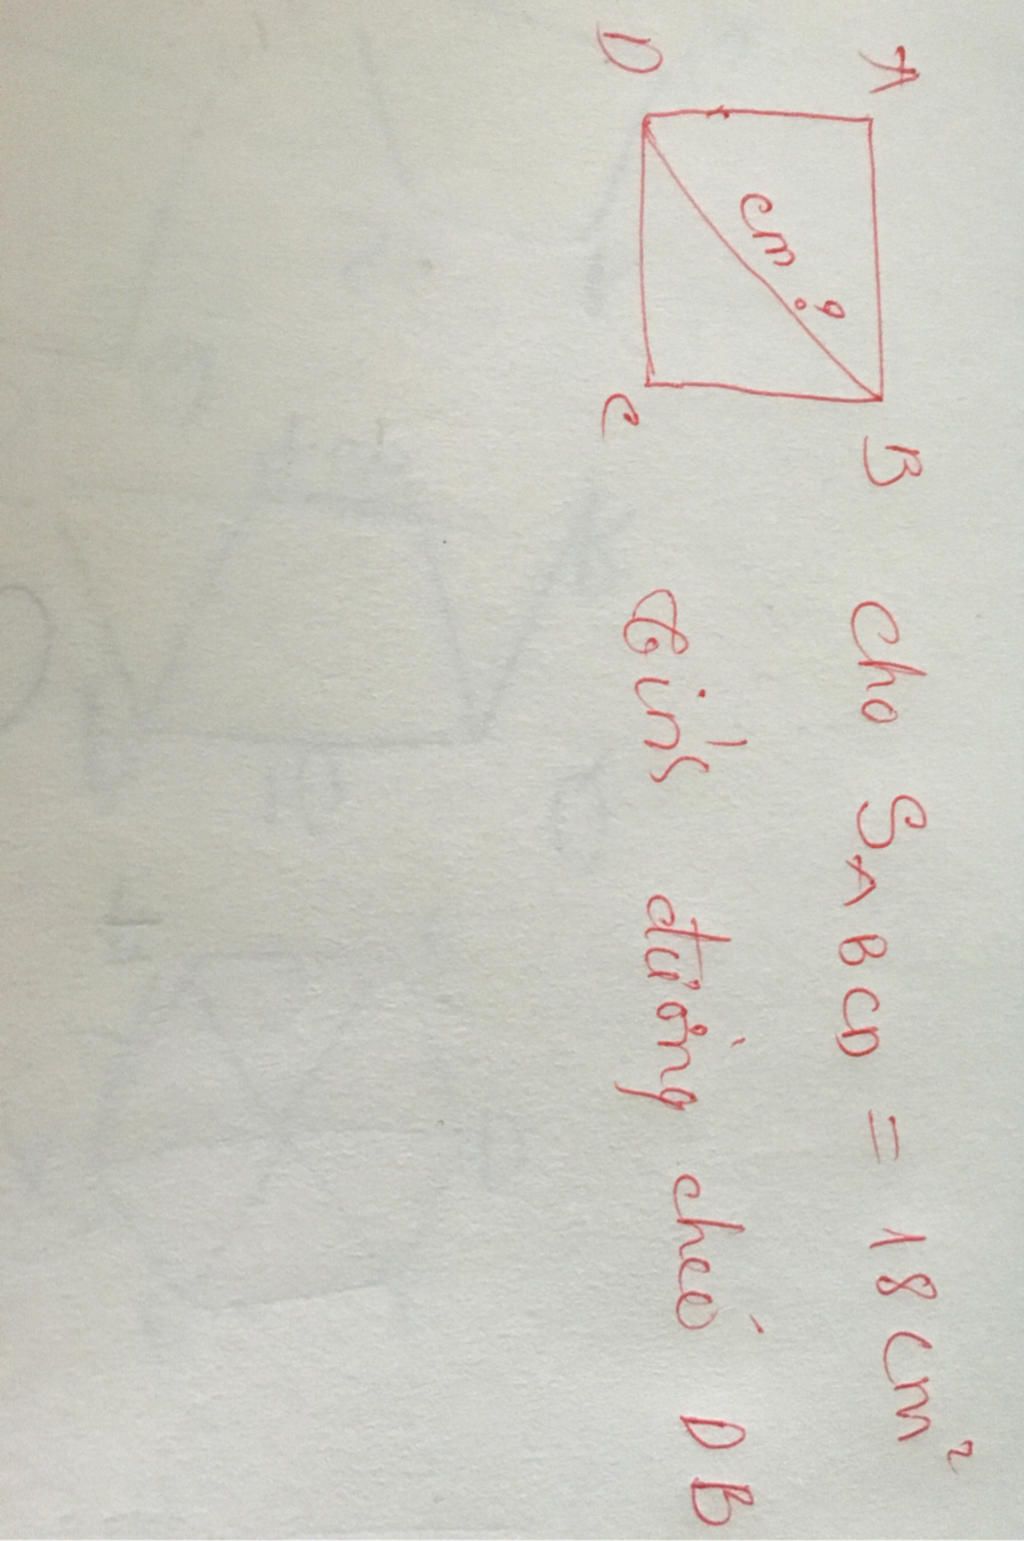 A
B
cm ?
D
C
Cho SABCD = 18cm²
Tính đường chéo DB